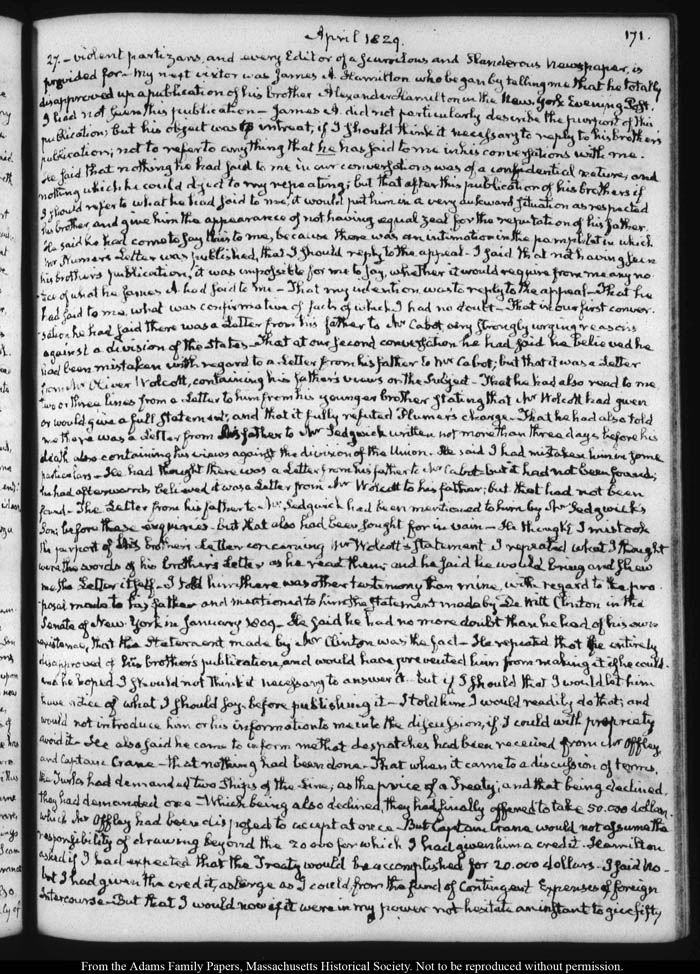 April 1829.
171.
27. – violent partizans, and every Editor of a scurrilous and slanderous newspaper, is
provided for – My next visitor was James A. Hamilton who began by telling me that he totally
disapproved up a publication of his brother Alexander Hamilton in the New York Evening Post.
I had not seen this publication – James A. did not particularly describe the purport of this
publication; but his object was to intreat, if I should think it necessary to reply to his brother's
publication; not to refer to any thing that he has said to me in his conversations with me.
He said that nothing he had said to me in our conversations was of a confidential nature, and
nothing which he could object to my repeating; but that after this publication of his brothers if
I should refer to what he had said to me, it would put him in a very awkward situation as respected
his brother and give him the appearance of not having equal zeal for the reputation of his father.
He said he had come to say this to me, because there was an intimation in the pamphlet in which
Mr Plumer's Letter was published, that I should reply to the appeal – I said that not having seen
his brother's publication, it was impossible for me to say, whether it would require from me any no-
-tice of what he James A. had said to me – That my intention was to reply to the appeal – That he
had said to me, what was confirmative of facts of which I had no doubt – That in our first conver-
-sation he had said there was a Letter from his father to Mr Cabot, very strongly urging reasons
against a division of the States – That at our second conversation he had said he believed he
had been mistaken with regard to a Letter from his father to Mr Cabot; but that it was a Letter
from Mr Oliver Wolcott, containing his father's views on the subject – That he had also read to me
two or three lines from a Letter to him from his younger brother stating that Mr Wolcott had given
or would give a full statement, and that it fully refuted Plumer's charge – That he had also told
me there was a Letter from his father to Mr Sedgwick written not more than three days before his
death also containing his views against the division of the Union. He said I had mistaken him in some
particulars – He had thought there was a Letter from his father to Mr Cabot but it had not been found;
he had afterwards believed it was a Letter from Mr Wolcott to his father; but that had not been
found – The Letter from his father to Mr Sedgwick had been mentioned to him by Mr Sedgwick's
Son, before these enquiries – but that also had been sought for in vain – He thought I mistook
the purport of his brother's Letter concerning Mr Wolcott's statement I repeated what I thought
were the words of his brothers Letter as he read them; and he said he would bring and shew
me the Letter itself – I told him there was other testimony than mine, with regard to the pro-
-posal made to his father and mentioned to him the statement made by De Witt Clinton in the
Senate of New York in January 1809 – He said he had no more doubt than he had of his own
existence, that the statement made by Mr Clinton was the fact – He repeated that he entirely
disapproved of his brother's publication, and would have prevented him from making it if he could –
and he hoped I should not think it necessary to answer it – but if I should that I would let him
have notice of what I should say before publishing it – I told him I would readily do that; and
would not introduce him or his information to me into the discussion, if I could with propriety
avoid it – He also said he came to inform me that despatches had been received from Mr Offley
and Captain Crane – that nothing had been done – That when it came to a discussion of terms,
the Turks had demanded two ships of the Line; as the price of a Treaty; and that being declined,
they had demanded one – Which being also declined, they had finally offered to take 50.000 dollars.
which Mr Offley had been disposed to accept at once – But Captain Crane would not assume the
responsibility of drawing beyond the 20000 for which I had given him a credit – Hamilton
asked if I had expected that the Treaty would be accomplished for 20.000 dollars – I said No –
but I had given the credit, as large as I could, from the fund of Contingent Expenses of foreign
Intercourse – But that I would now if it were in my power not hesitate an instant to give fifty
From the Adams Family Papers, Massachusetts Historical Society. Not to be reproduced without permission.